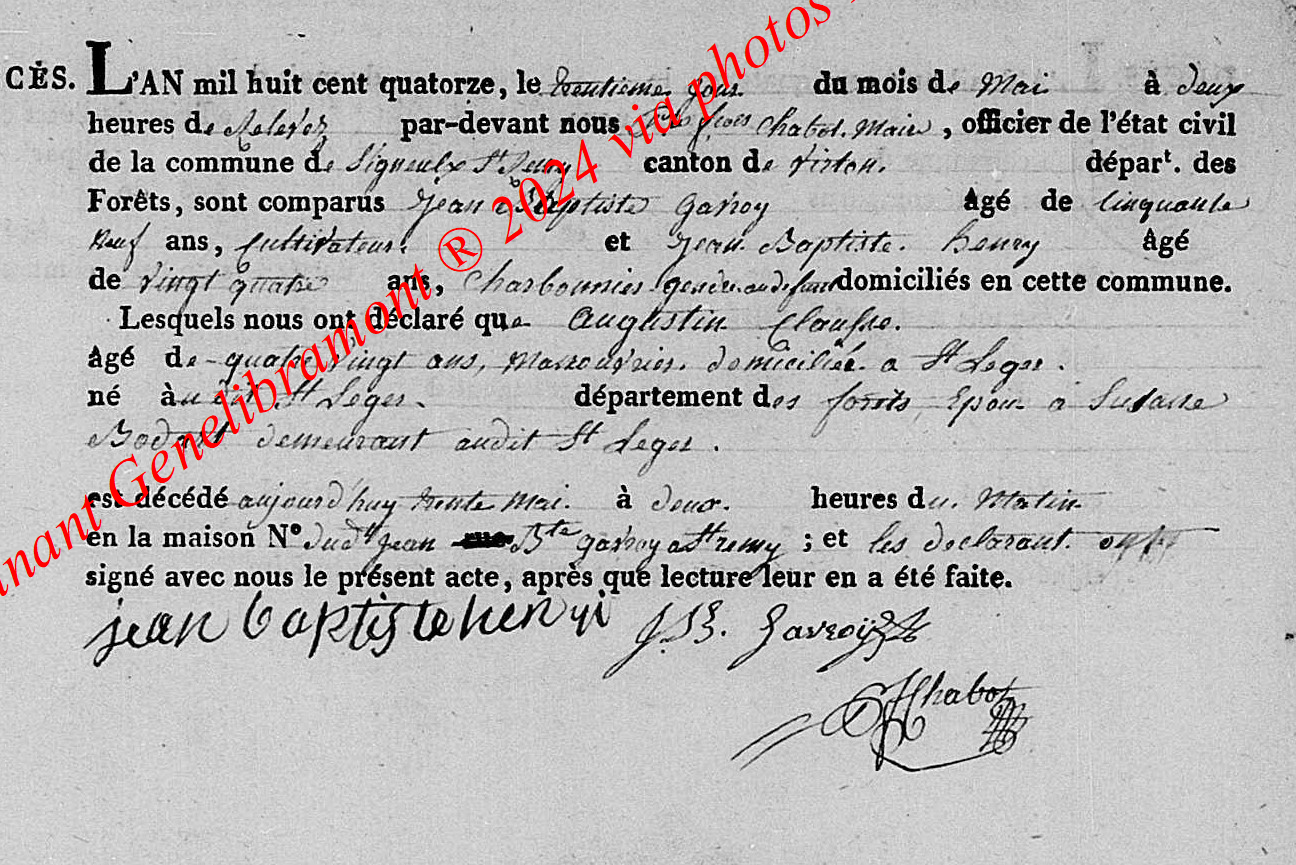 CÈS. L'AN mil huit cent quatorze, le trentieme jour du mois de Mai à deux
heures de par-devant nous Chabot Maire, officier de l'état civil
de la commune de Signeulx St Remy canton de Virton. départ. des
Forêts, sont comparus Jean Baptiste Gavroy âgé de Cinquante
Neuf ans, Cultivateur. et Jean Baptiste henry âgé
de vingt quatre ans, Charbonnier domiciliés en cette commune.
Lesquels nous ont déclaré que Augustin Clausse.
âgé de quatre vingt ans, Manouvrier. domicilié a St Leger.
né àu dit St Leger. département des forêts Epoux a Susanne
Bodart demeurant audit St Leger.
est décédé aujourd'huy trente Mai. à deux. heures du Matin
en la maison N° dudt jean Bte gavroy a St remy ; et les declarant ont
signé avec nous le présent acte, après que lecture leur en a été faite.
jean baptiste henri J B. Gavroy
Chabot
nant Genelibramont ® 2024 via photos